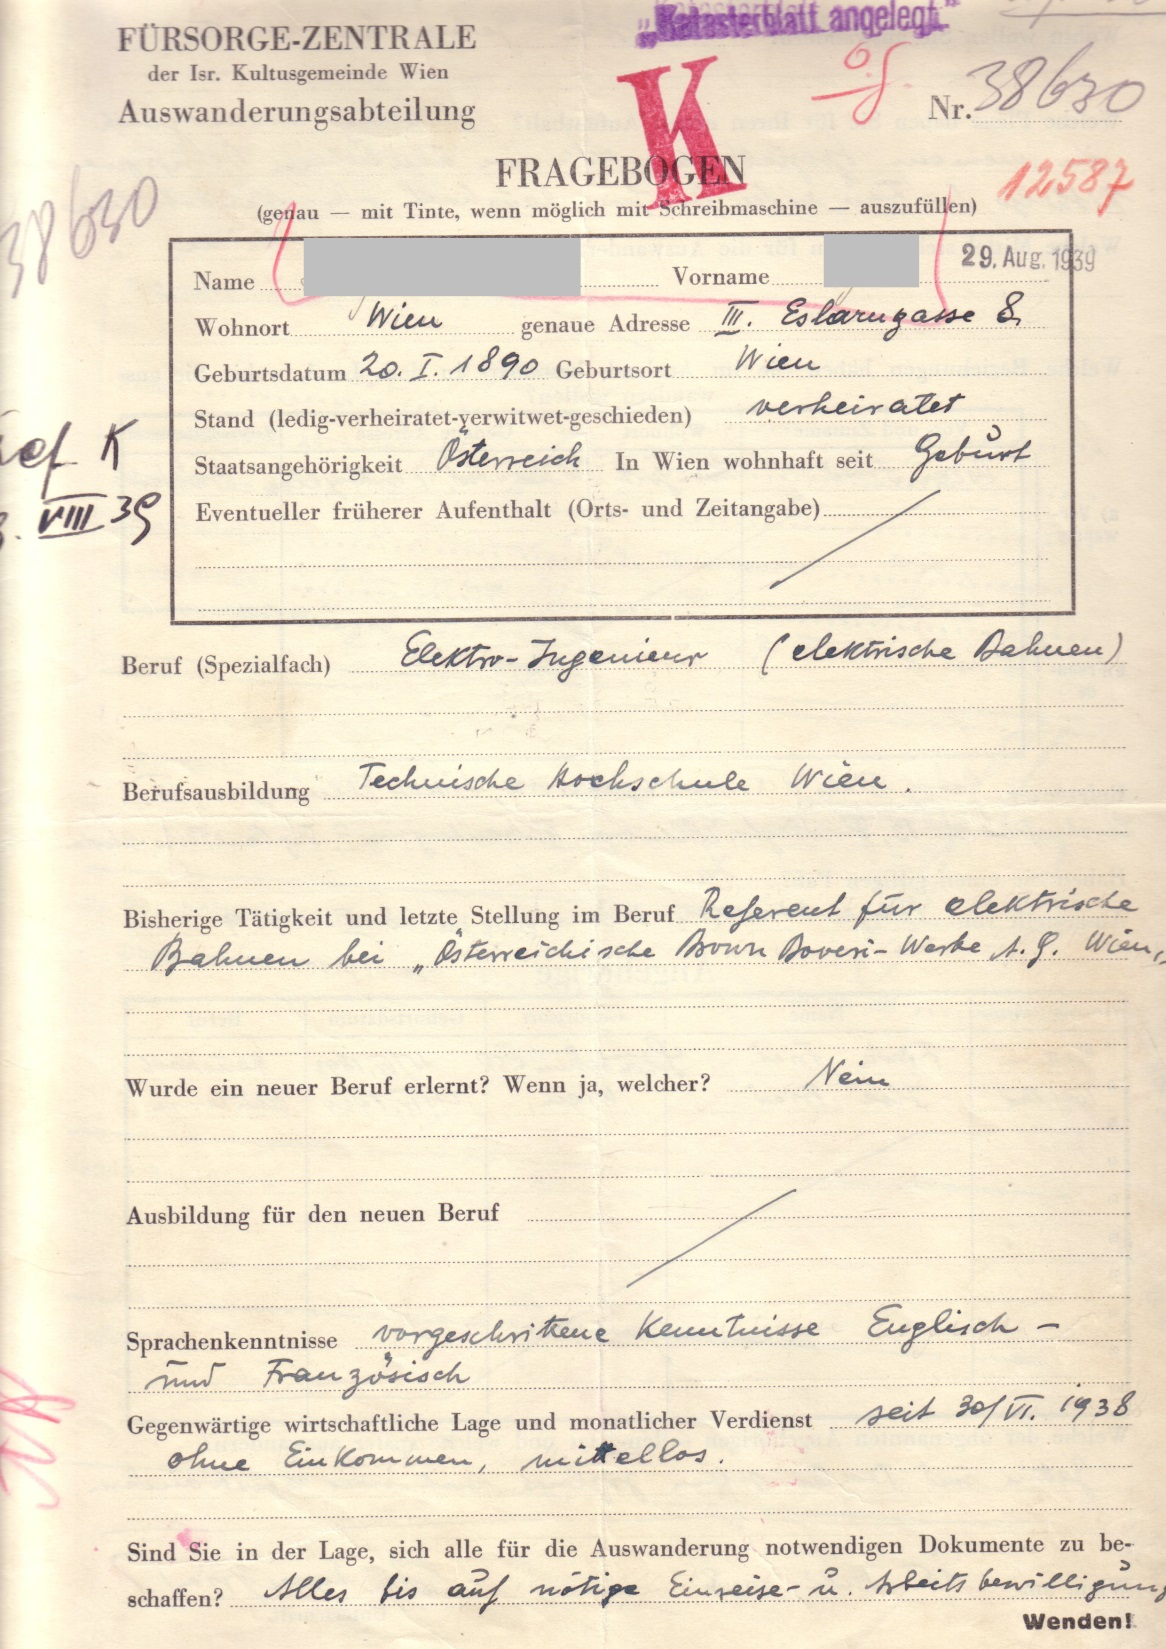 „Katasterblatt angelegt.“
FÜRSORGE-ZENTRALE
der Isr. Kultusgemeinde Wien
Auswanderungsabteilung
K
Nr. 38630
FRAGEBOGEN
12587
38630
(genau — mit Tinte, wenn möglich mit Schreibmaschine — auszufüllen)
29. Aug. 1939
Name Vorname
Wohnort Wien genaue Adresse III. Eslarngasse 8
Geburtsdatum 20. I. 1890 Geburtsort Wien
Stand (ledig-verheiratet-verwitwet-geschieden) verheiratet
Staatsangehörigkeit Österreich In Wien wohnhaft seit Geburt
K
VIII 39
Eventueller früherer Aufenthalt (Orts- und Zeitangabe)
Beruf (Spezialfach) Elektro-Ingenieur (elektrische Bahnen)
Berufsausbildung Technische Hochschule Wien.
Bisherige Tätigkeit und letzte Stellung im Beruf Referent für elektrische
Bahnen bei „Österreichische Brown Boveri-Werke A.G. Wien,
Wurde ein neuer Beruf erlernt? Wenn ja, welcher? Nein
Ausbildung für den neuen Beruf
Sprachenkenntnisse vorgeschrittene Kenntnisse Englisch –
und Französisch
Gegenwärtige wirtschaftliche Lage und monatlicher Verdienst seit 30/VI. 1938
ohne Einkommen, mittellos.
Sind Sie in der Lage, sich alle für die Auswanderung notwendigen Dokumente zu be-
schaffen? Alles bis auf nötige Einreise- u. Arbeitsbewilligung
Wenden!